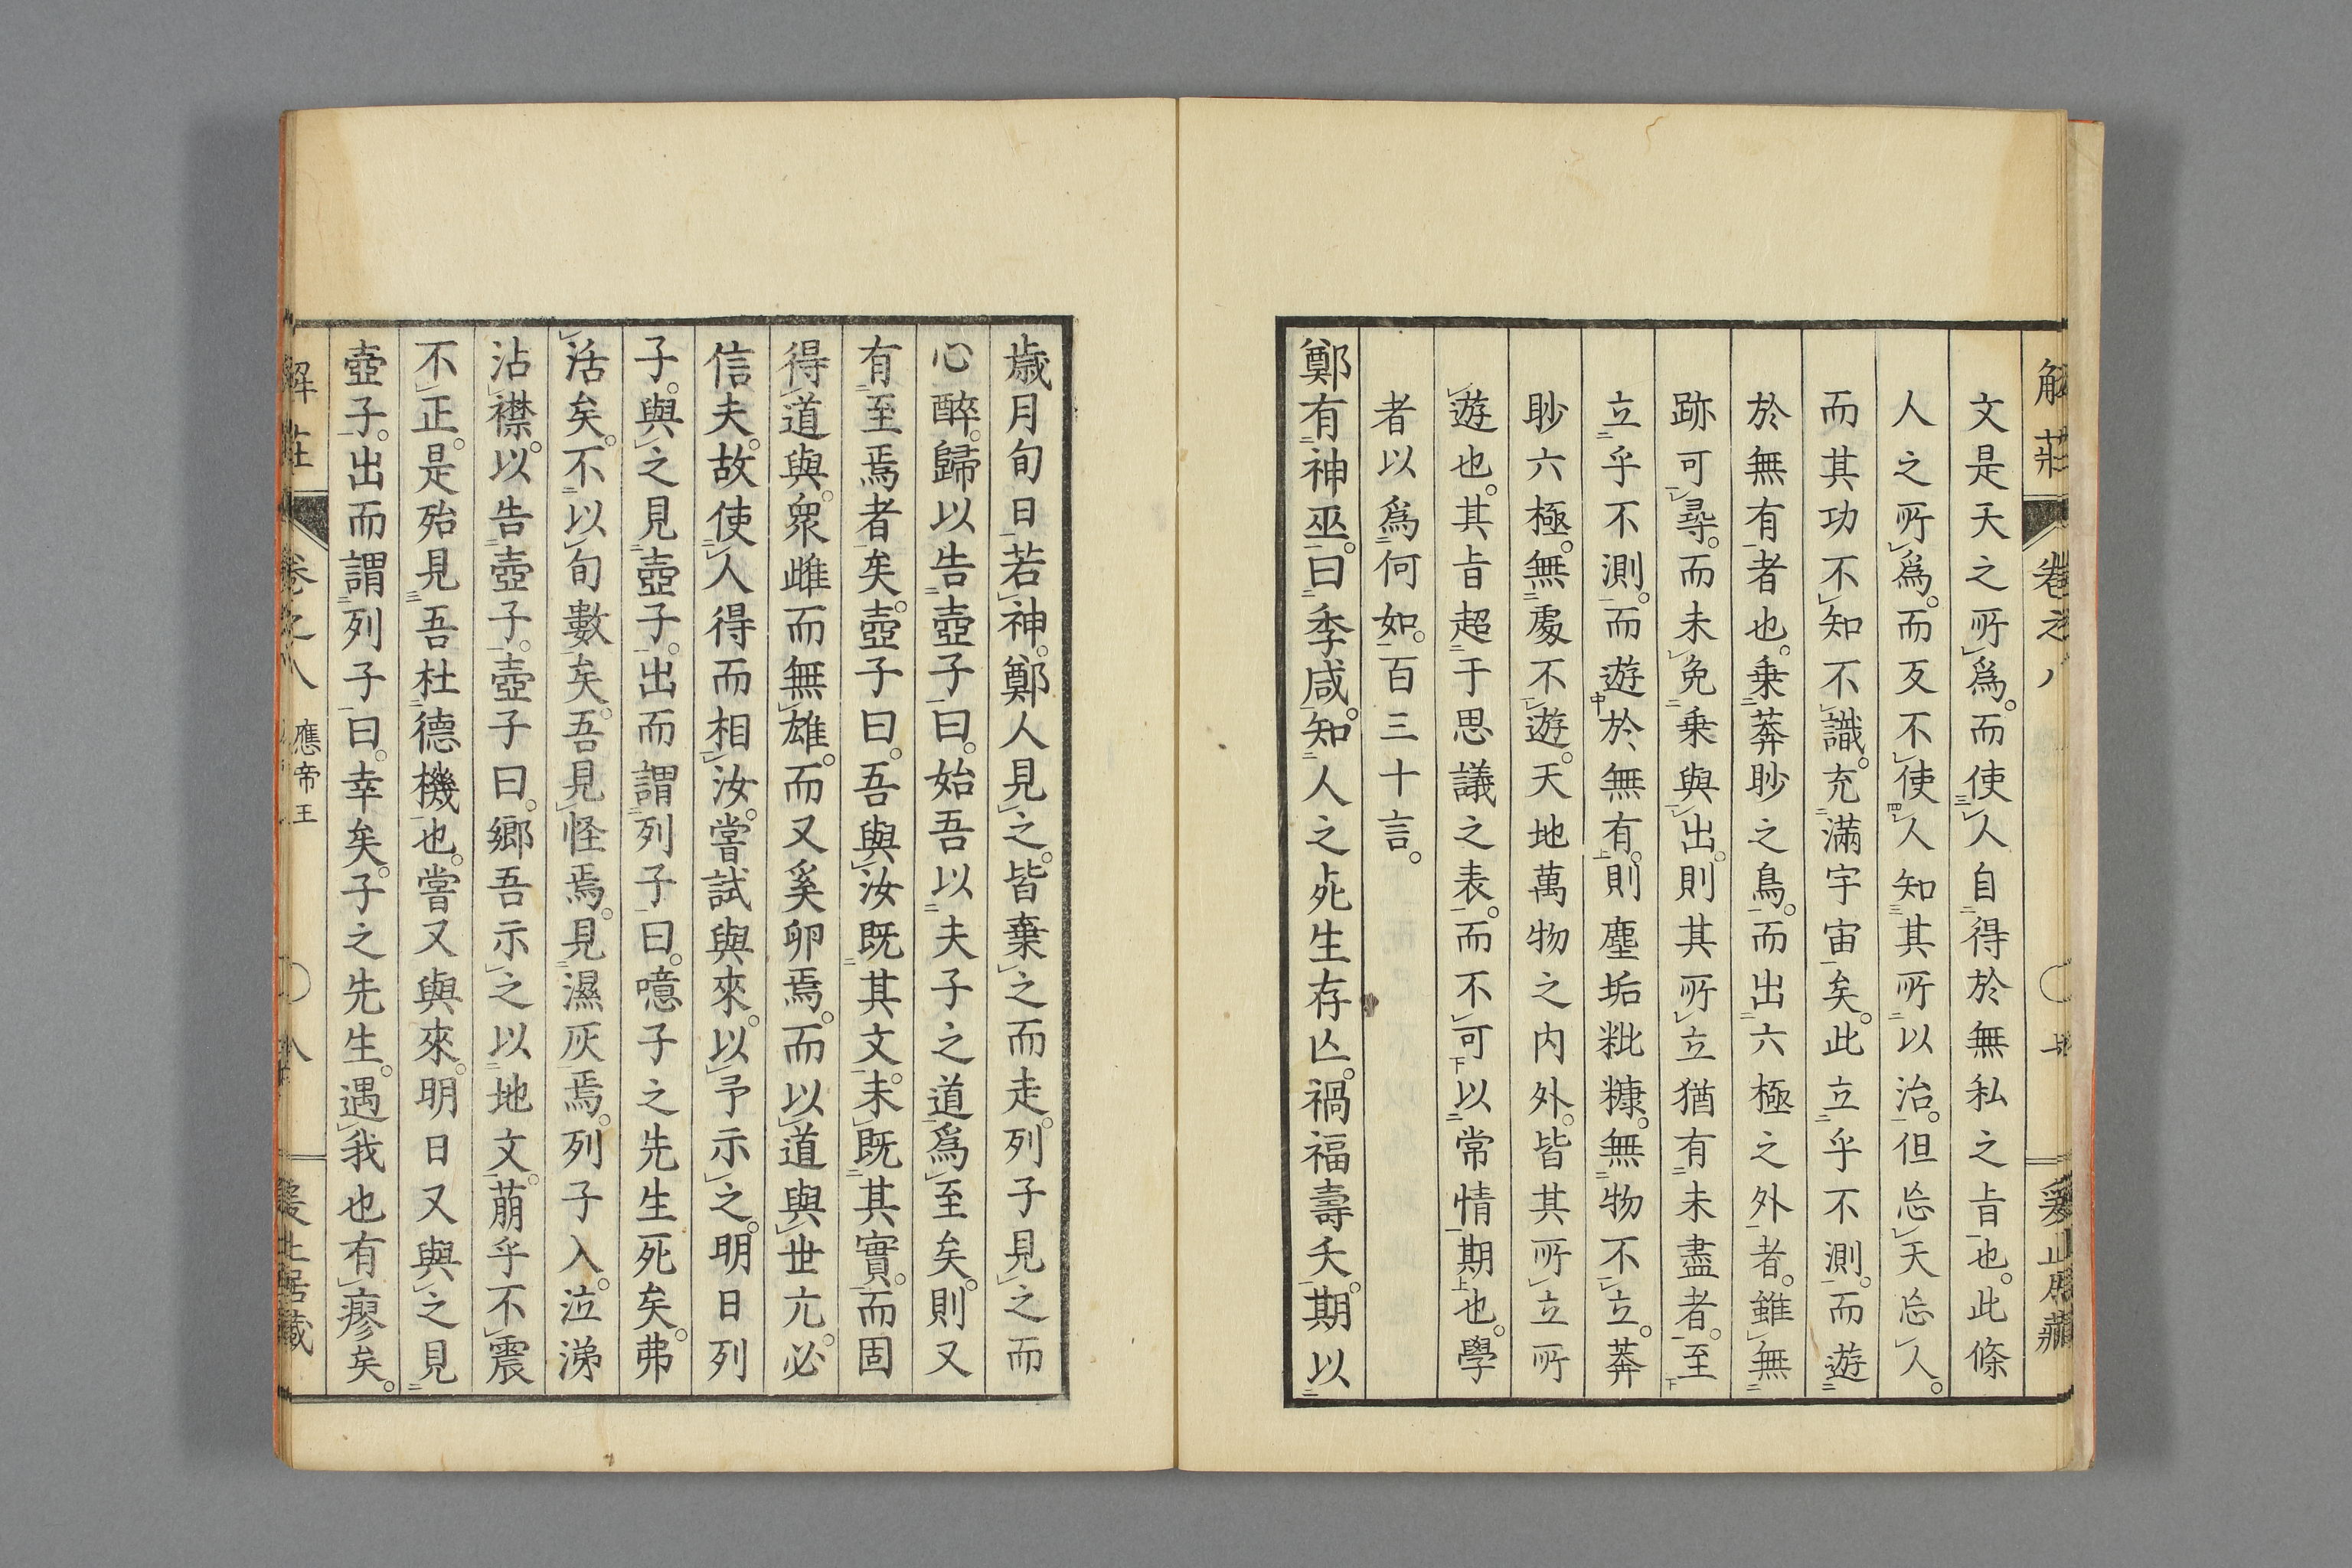 解莊 卷之八 〇 七 爰止居藏
文是天之所爲。而使人自得於無私之旨也。此條
人之所爲。而反不使人知其所以治。但忘天忘人。
而其功不知不識。充滿宇宙矣。此立乎不測。而遊
於無有者也。乗莽眇之鳥。而出六極之外者。雖無
跡可尋。而未免乗與出。則其所立猶有未盡者。至
立乎不測。而遊於無有。則塵垢粃糠。無物不立。莽
眇六極。無處不遊。天地萬物之内外。皆其所立所
遊也。其旨超于思議之表。而不可以常情期也。學
者以爲何如。百三十言。
鄭有神巫。曰季咸。知人之死生存亾。禍福壽夭。期以
歳月旬日。若神。鄭人見之。皆棄之而走。列子見之而
心醉。歸以告壺子。曰。始吾以夫子之道爲至矣。則又
有至焉者矣。壺子曰。吾與汝既其文。未既其實。而固
得道與。衆雌而無雄。而又奚卵焉。而以道與世亢。必
信夫。故使人得而相汝。嘗試與來。以予示之。明日列
子。與之見壺子。出而謂列子曰。噫子之先生死矣。弗
活矣。不以旬數矣。吾見怪焉。見濕灰焉。列子入。泣涕
沾襟。以告壺子。壺子曰。鄉吾示之以地文。萠乎不震
不正。是殆見吾杜德機也。嘗又與來。明日又與之見
壺子。出而謂列子曰。幸矣。子之先生。遇我也有瘳矣。
解莊 卷之八 應帝王 〇 八 爰止居藏